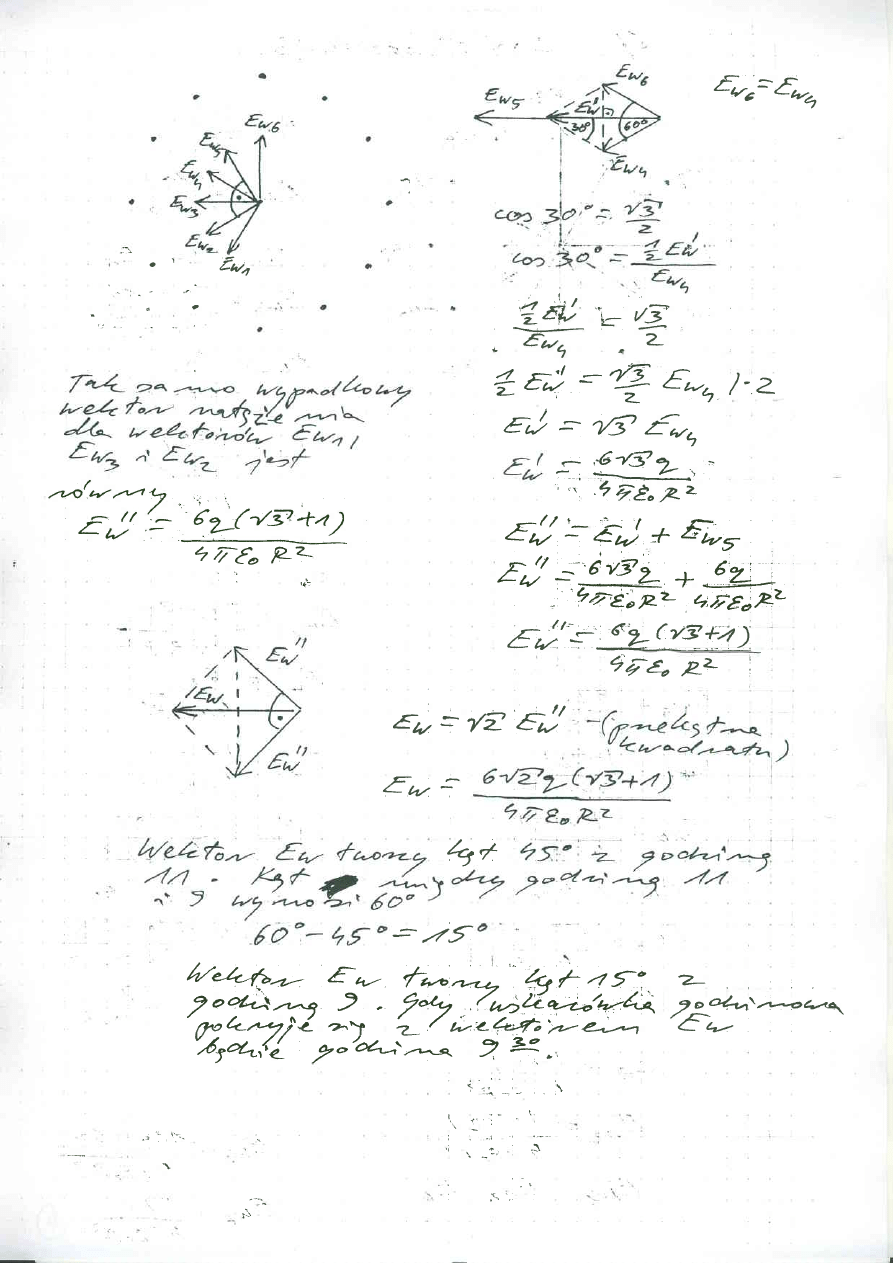 E_w6
E_w5
E_w4
E_w3
E_w2
E_w1
E_w6
E_w6 = E_w4
E_w5
E_w'
30°
60°
E_w4
cos 30° = √3/2
cos 30° = ½ E_w' / E_w4
½ E_w' / E_w4 = √3/2
½ E_w' = √3/2 E_w4 | · 2
E_w' = √3 E_w4
E_w' = 6√3 q / 4πε₀R²
E_w'' = E_w' + E_w5
E_w'' = 6√3 q / 4πε₀R² + 6q / 4πε₀R²
E_w'' = 6q (√3+1) / 4πε₀R²
Tak samo wypadkowy
wektor natężenia
dla wektorów E_w1,
E_w3 i E_w2 jest
równy
E_w'' = 6q (√3+1) / 4πε₀R²
E_w''
E_w
E_w''
E_w = √2 E_w'' - (przekątna
kwadratu)
E_w = 6√2 q (√3+1) / 4πε₀R²
Wektor Ew tworzy kąt 45° z godziną
11. Kąt między godziną 11
i 9 wynosi 60°
60° - 45° = 15°
Wektor Ew tworzy kąt 15° z
godziną 9. Gdy wskazówka godzinowa
pokryje się z wektorem Ew
będzie godzina 9³⁰.